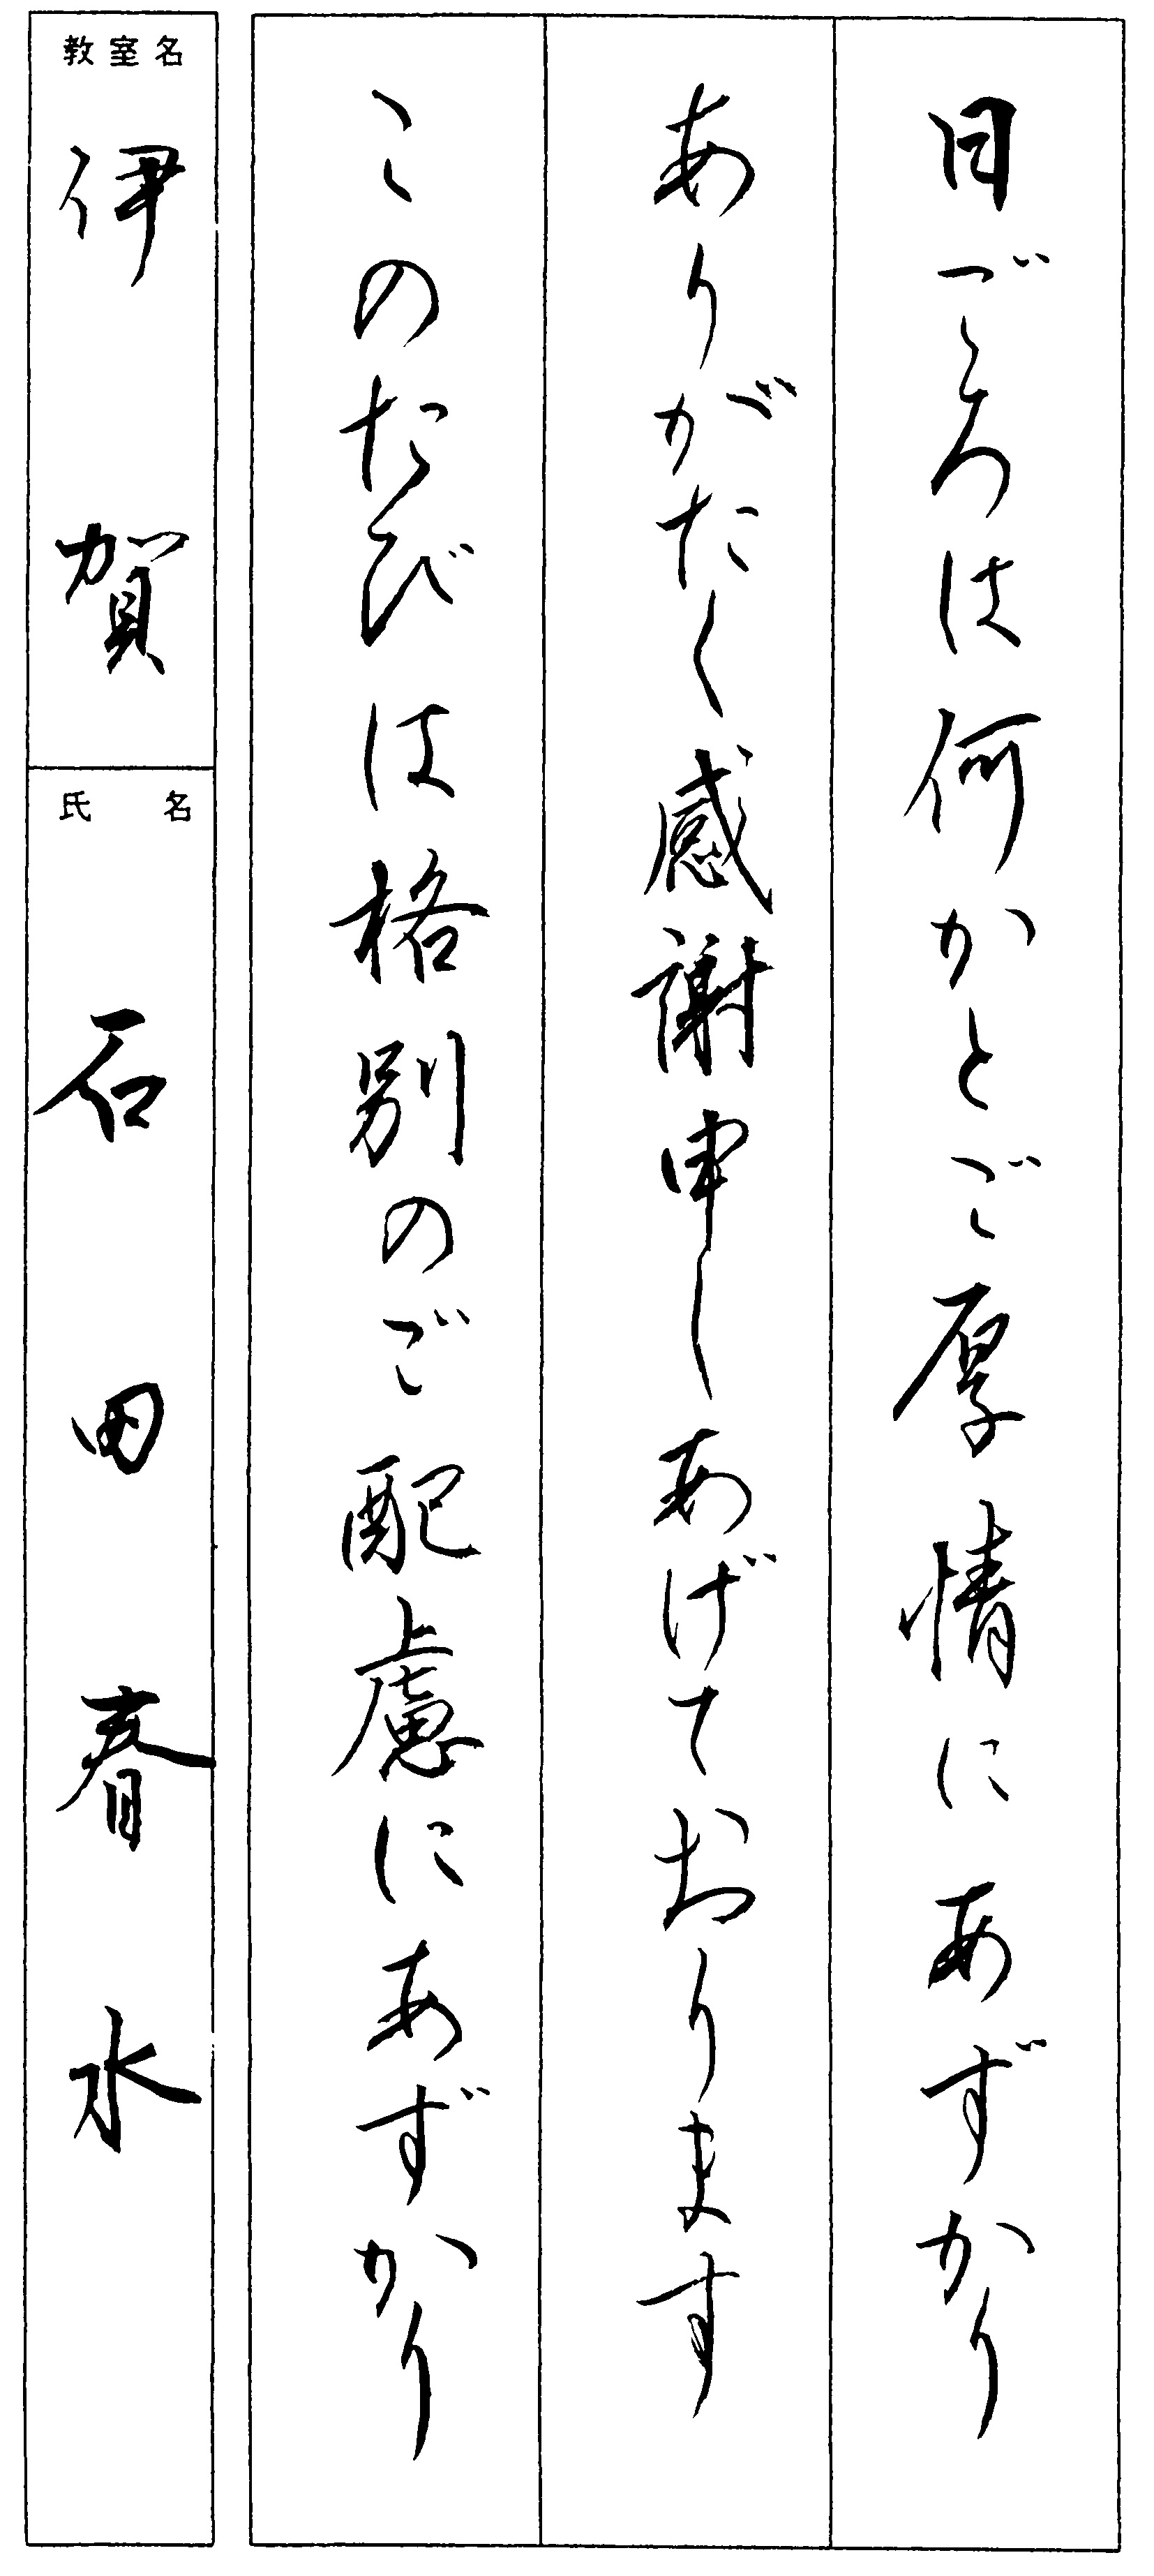 日ごろは何かとご厚情にあずかり
ありがたく感謝申しあげております
このたびは格別のご配慮にあずかり
教室名
伊賀
氏名
石田春水